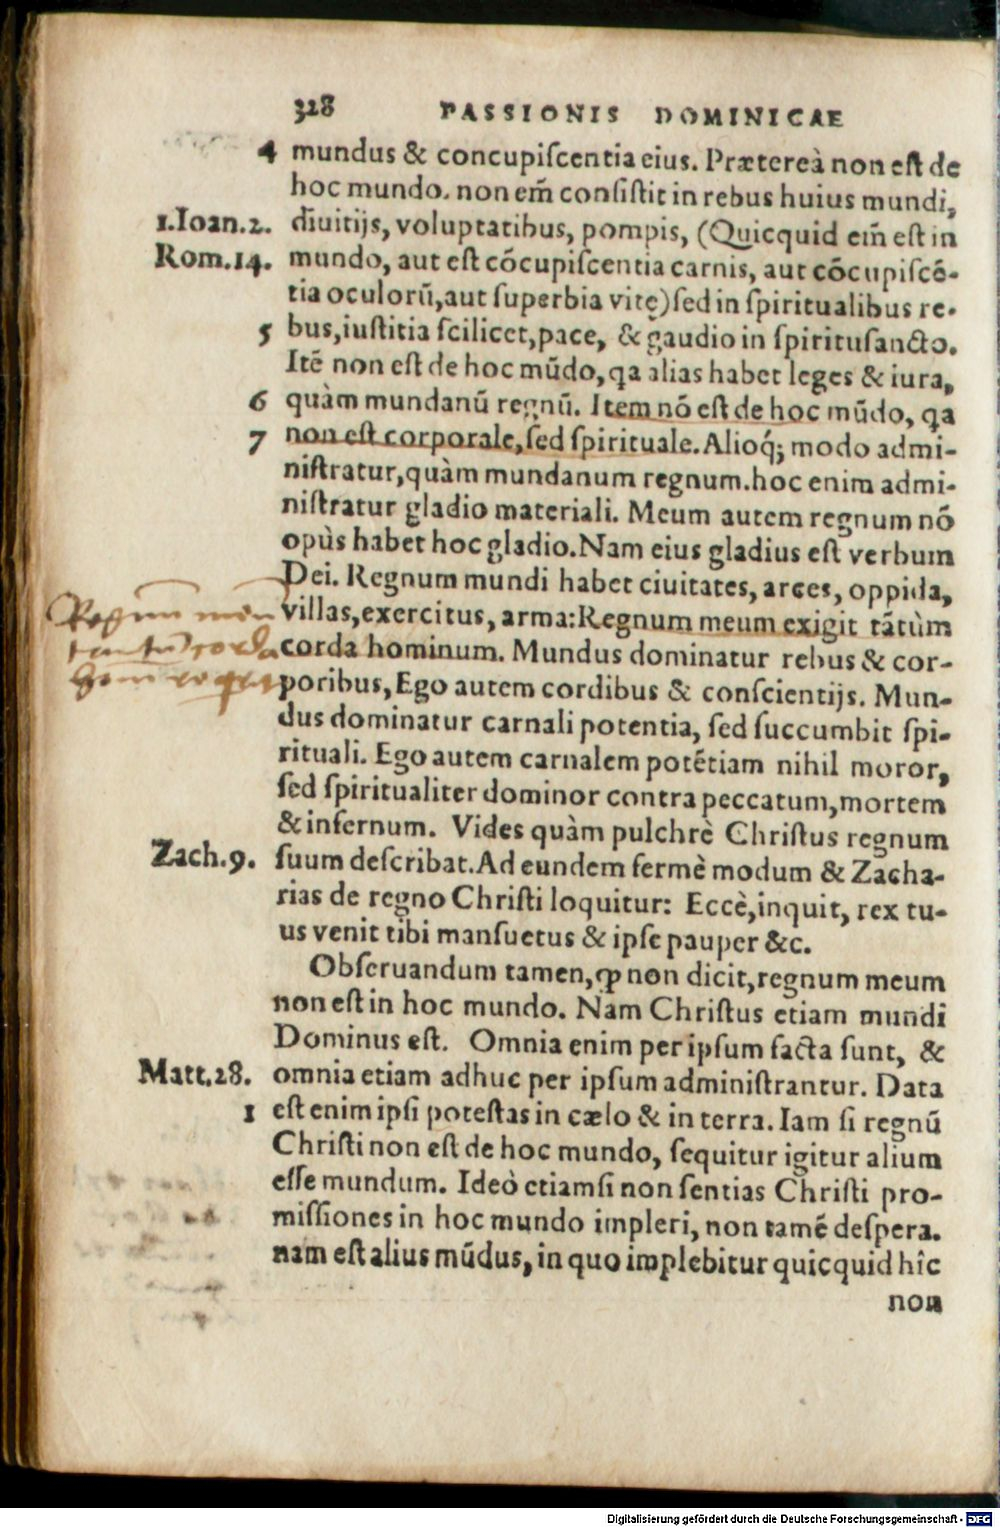 328 PASSIONIS DOMINICAE
4 mundus & concupiſcentia eius. Prætereà non eſt de
hoc mundo. non em̃ conſiſtit in rebus huius mundi,
1.Ioan.2. diuitijs, voluptatibus, pompis, (Quicquid em̃ eſt in
Rom.14. mundo, aut eſt cõcupiſcentia carnis, aut cõcupiſcẽ-
tia oculorũ, aut ſuperbia vitę) ſed in ſpiritualibus re-
5 bus, iuſtitia ſcilicet, pace, & gaudio in ſpirituſancto.
Itẽ non eſt de hoc mũdo, qa alias habet leges & iura,
6 quàm mundanũ regnũ. Item nõ eſt de hoc mũdo, qa
7 non eſt corporale, ſed ſpirituale. Alioq́; modo admi-
niſtratur, quàm mundanum regnum. hoc enim admi-
niſtratur gladio materiali. Meum autem regnum nõ
opùs habet hoc gladio. Nam eius gladius eſt verbum
Dei. Regnum mundi habet ciuitates, arces, oppida,
villas, exercitus, arma: Regnum meum exigit tãtùm
corda hominum. Mundus dominatur rebus & cor-
poribus, Ego autem cordibus & conſcientijs. Mun-
dus dominatur carnali potentia, ſed ſuccumbit ſpi-
rituali. Ego autem carnalem potẽtiam nihil moror,
ſed ſpiritualiter dominor contra peccatum, mortem
& infernum. Vides quàm pulchrè Chriſtus regnum
Zach.9. ſuum deſcribat. Ad eundem fermè modum & Zacha-
rias de regno Chriſti loquitur: Eccè, inquit, rex tu-
us venit tibi manſuetus & ipſe pauper &c.
Obſeruandum tamen, ꝙ non dicit, regnum meum
non eſt in hoc mundo. Nam Chriſtus etiam mundi
Dominus eſt. Omnia enim per ipſum facta ſunt, &
Matt.28. omnia etiam adhuc per ipſum adminiſtrantur. Data
1 eſt enim ipſi poteſtas in cælo & in terra. Iam ſi regnũ
Chriſti non eſt de hoc mundo, ſequitur igitur alium
eſſe mundum. Ideò etiamſi non ſentias Chriſti pro-
miſſiones in hoc mundo impleri, non tamẽ deſpera.
nam eſt alius mũdus, in quo implebitur quicquid hîc
non
Digitalisierung gefördert durch die Deutsche Forschungsgemeinschaft - DFG